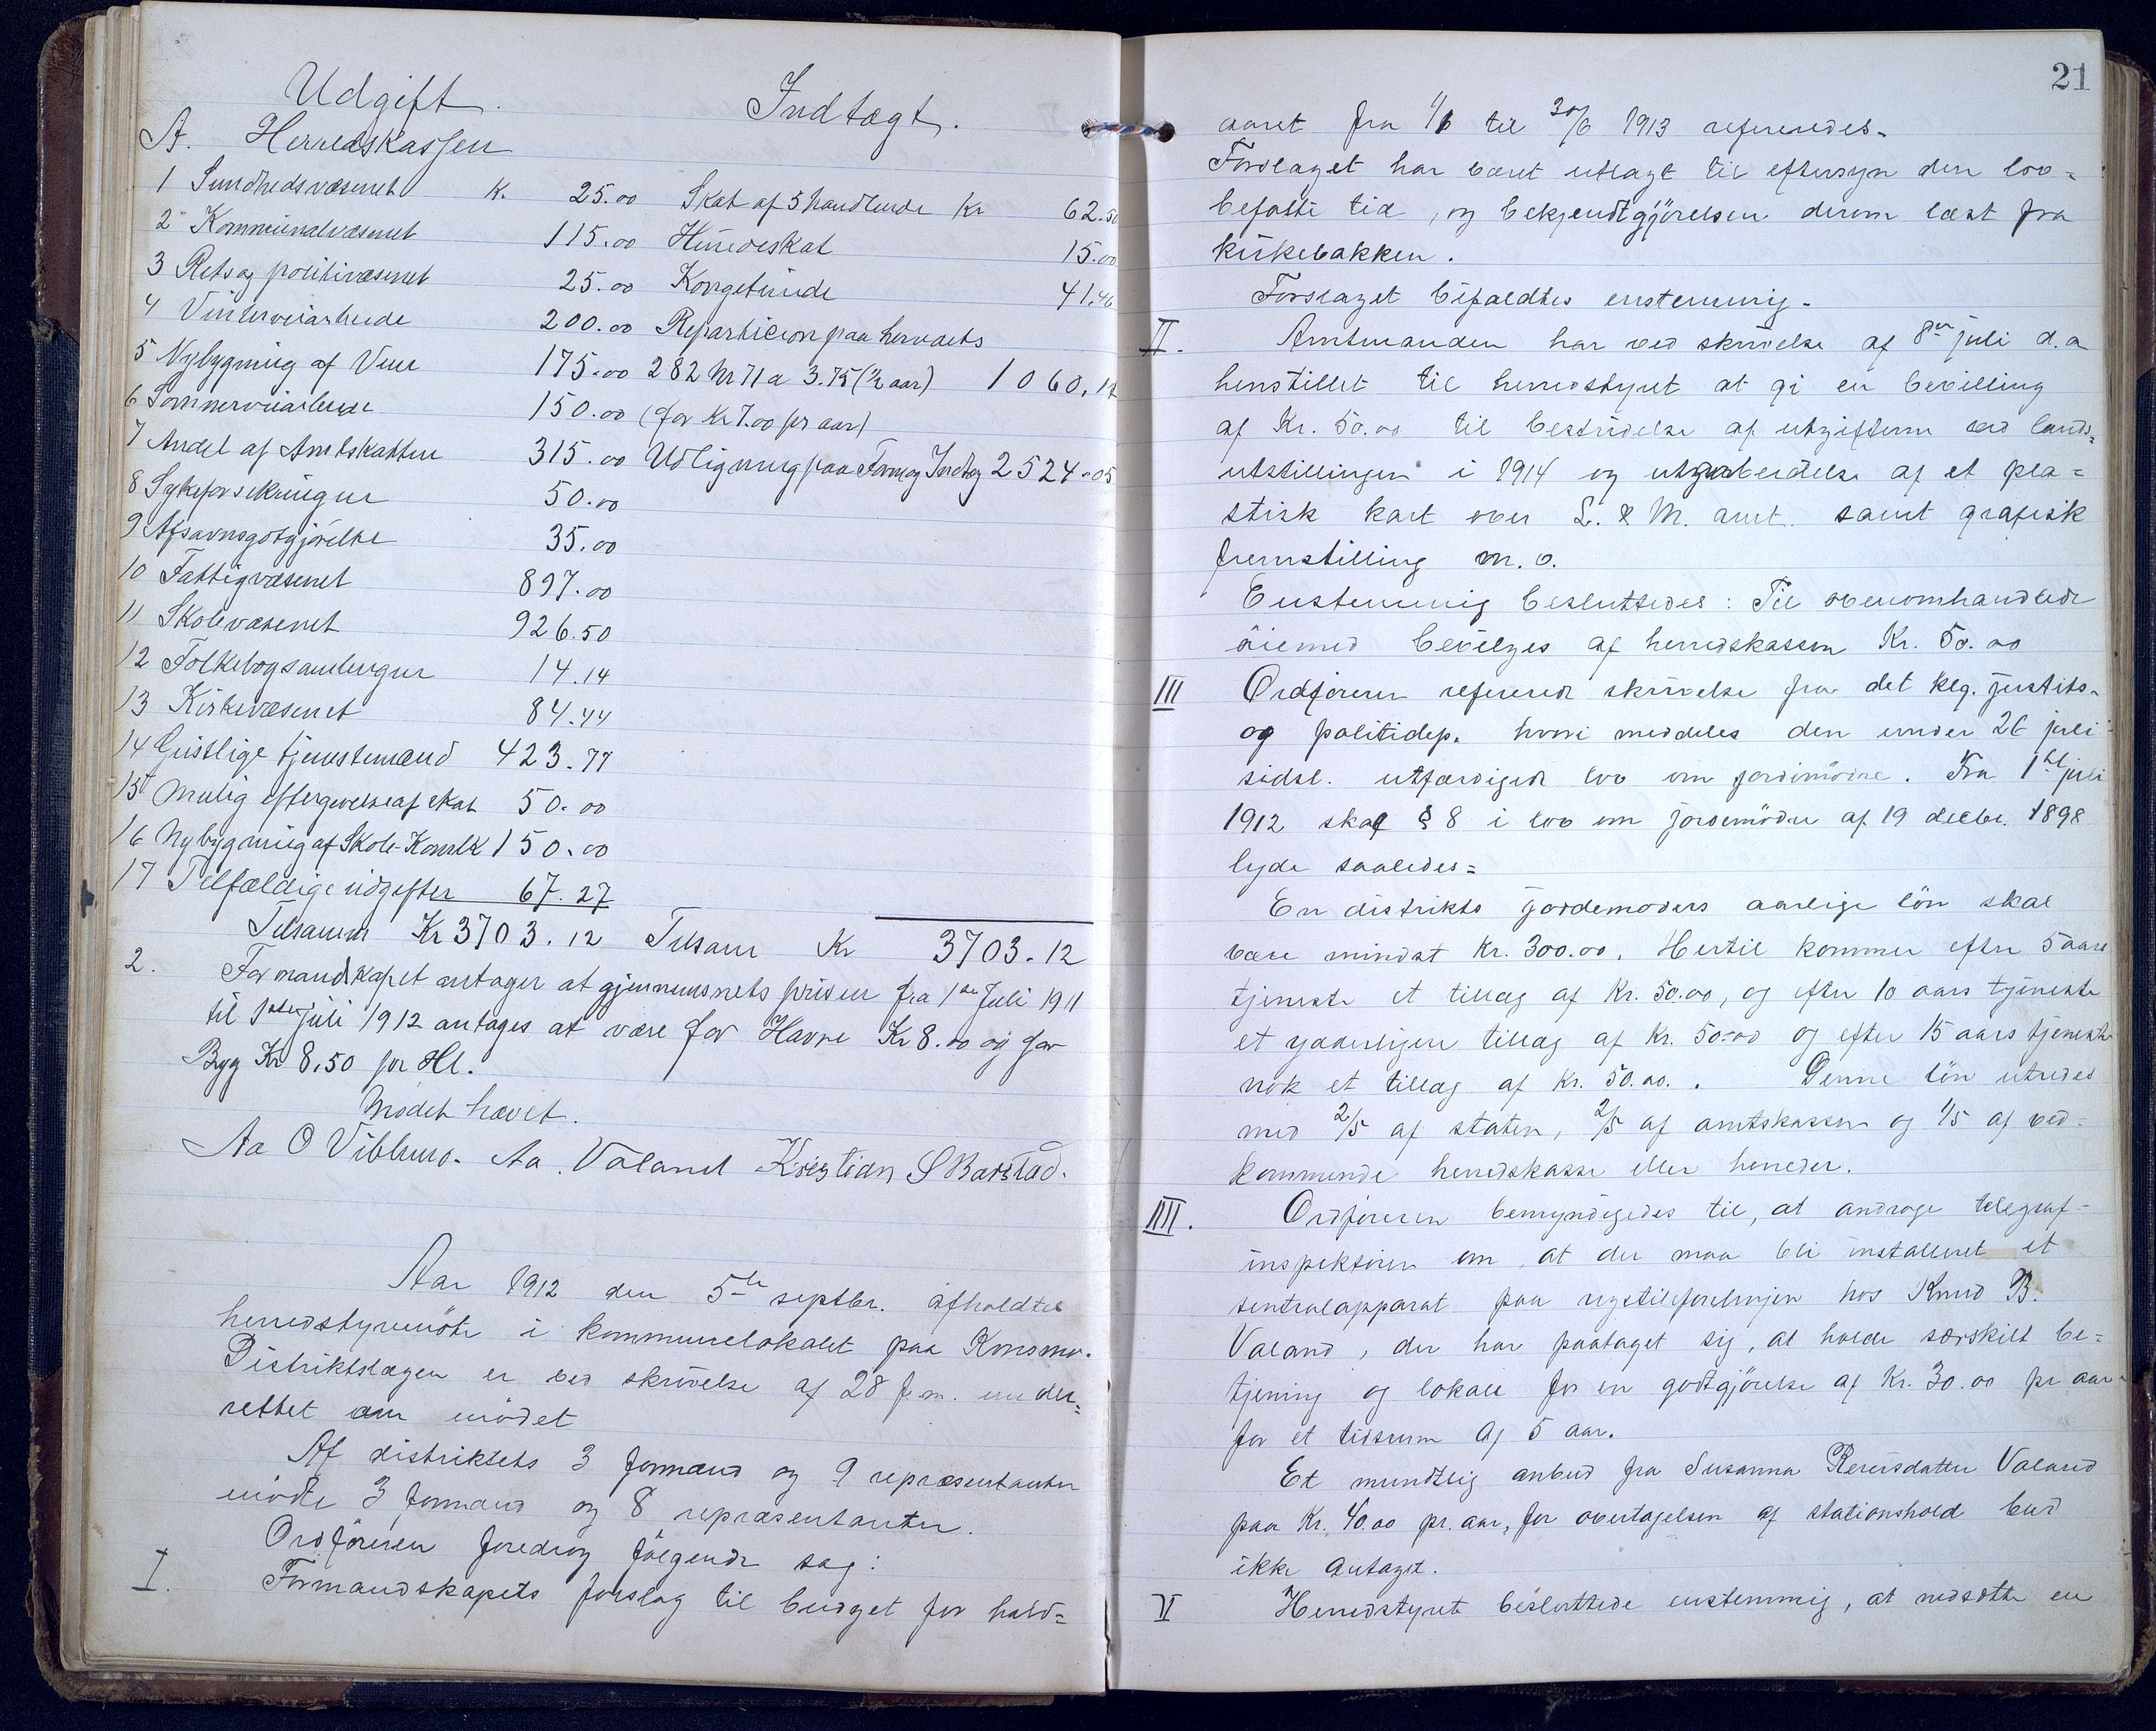 Udgift. Indtægt.
A. Herredskassen
1 Sundhedsvæsenet K. 25.00 Skat af 5 handlende Kr 62.50
2 Kommunalvæsenet 115.00 Hundeskat 15.00
3 Rets og politivæsenet 25.00 Kongetiende 41.40
4 Vinterveiarbeide 200.00 Reparticion paa herredets
5 Nybygning af Veie 175.00 282 M 71 a 3.75 (½ aar) 1060.17
6 Sommerveiarbeide 150.00 (for Kr 7.00 pr aar)
7 Andel af Amtskatten 315.00 Udligning paa Form og Indtæg 2524.05
8 Sykeforsikringen 50.00
9 Afsavnsgotgjörelse 35.00
10 Fattigvæsenet 897.00
11 Skolevæsenet 926.50
12 Folkebogsamlingen 14.14
13 Kirkevæsenet 84.44
14 Geistlige tjenestemænd 423.77
15 Mulig eftergivelse af skat 50.00
16 Nybygning af Skole-Komlk 150.00
17 Tilfældige udgifter 67.27
Tilsamm Kr 3703.12 Tilsam Kr 3703.12
2. Formandskapet antager at gjennemsnets prisen fra 1ste Juli 1911
til 1ste juli 1912 antages at være for Havre Kr 8.00 og for
Byg Kr 8.50 pr Hl.
Mødet hævet.
Aa O Vibhus. Aa. Valand Kristian S Barstad.
Aar 1912 den 5te septbr. afholdtes
herredstyremöte i kommunelokalet paa Konsmo.
Distriktslægen er ved skrivelse af 28 f.m. under=
rettet om mödet
Af distriktets 3 formænd og 9 repræsentanter
mödte 3 formænd og 8 repræsentanter.
Ordföreren foredrog fölgende sag:
I. Formandskapets forslag til budget for halv=
21
aaret fra 1/1 til 30/6 1913 refereredes.
Forslaget har været utlagt til eftersyn den lov=
befalte tid, og bekjendtgjörelsen derom læst fra
kirkebakken.
Forslaget bifaldtes enstemmig.
II. Amtmanden har ved skrivelse af 8de juli d.a
henstillet til herredstyret at gi en bevilling
af Kr. 50.00 til bestridelse af utgifterne ved lands=
utstillingen i 1914 og utarbeidelse af et pla=
stisk kart over L. & M. amt. samt grafisk
fremstilling m. v.
Enstemmig besluttedes: Til ovenomhandlede
öiemed bevilges af herredskassen Kr. 50.00
III Ordføreren refererede skrivelse fra det klg. justits-
og politidep. hvori meddeles den under 26 juli
sidsl. utfærdigede lov om jordmödre. Fra 1ste juli
1912 skal § 8 i lov om jordemödre af 19 decbr. 1898
lyde saaledes=
En distrikts jordemoders aarlige lön skal
være mindst Kr. 300.00. Hertil kommer efter 5 aars
tjeneste et tillæg af Kr. 50.00, og efter 10 aars tjeneste
et yderligere tillæg af Kr. 50.00 og efter 15 aars tjeneste
nok et tillæg af Kr. 50.00.. Denne lön utredes
med 2/5 af staten, 2/5 af amtskassen og 1/5 af ved=
kommende herredskasse eller herreder.
IIII. Ordföreren bemyndigedes til, at androge telegraf-
inspektören om, at der maa bli installeret et
sentralapparat paa rigstelefonlinjen hos Knud B.
Valand, der har paataget sig, at holde særskilt be=
tjening og lokale for en godtgjörelse af Kr. 30.00 pr aar
for et tidsrum af 5 aar.
Et mundtlig anbud fra Susanna Reiersdatter Valand
paa Kr. 40.00 pr. aar, for overtagelsen af stationshold blev
ikke antaget.
V Herredstyret besluttede enstemmig, at nedsætte en